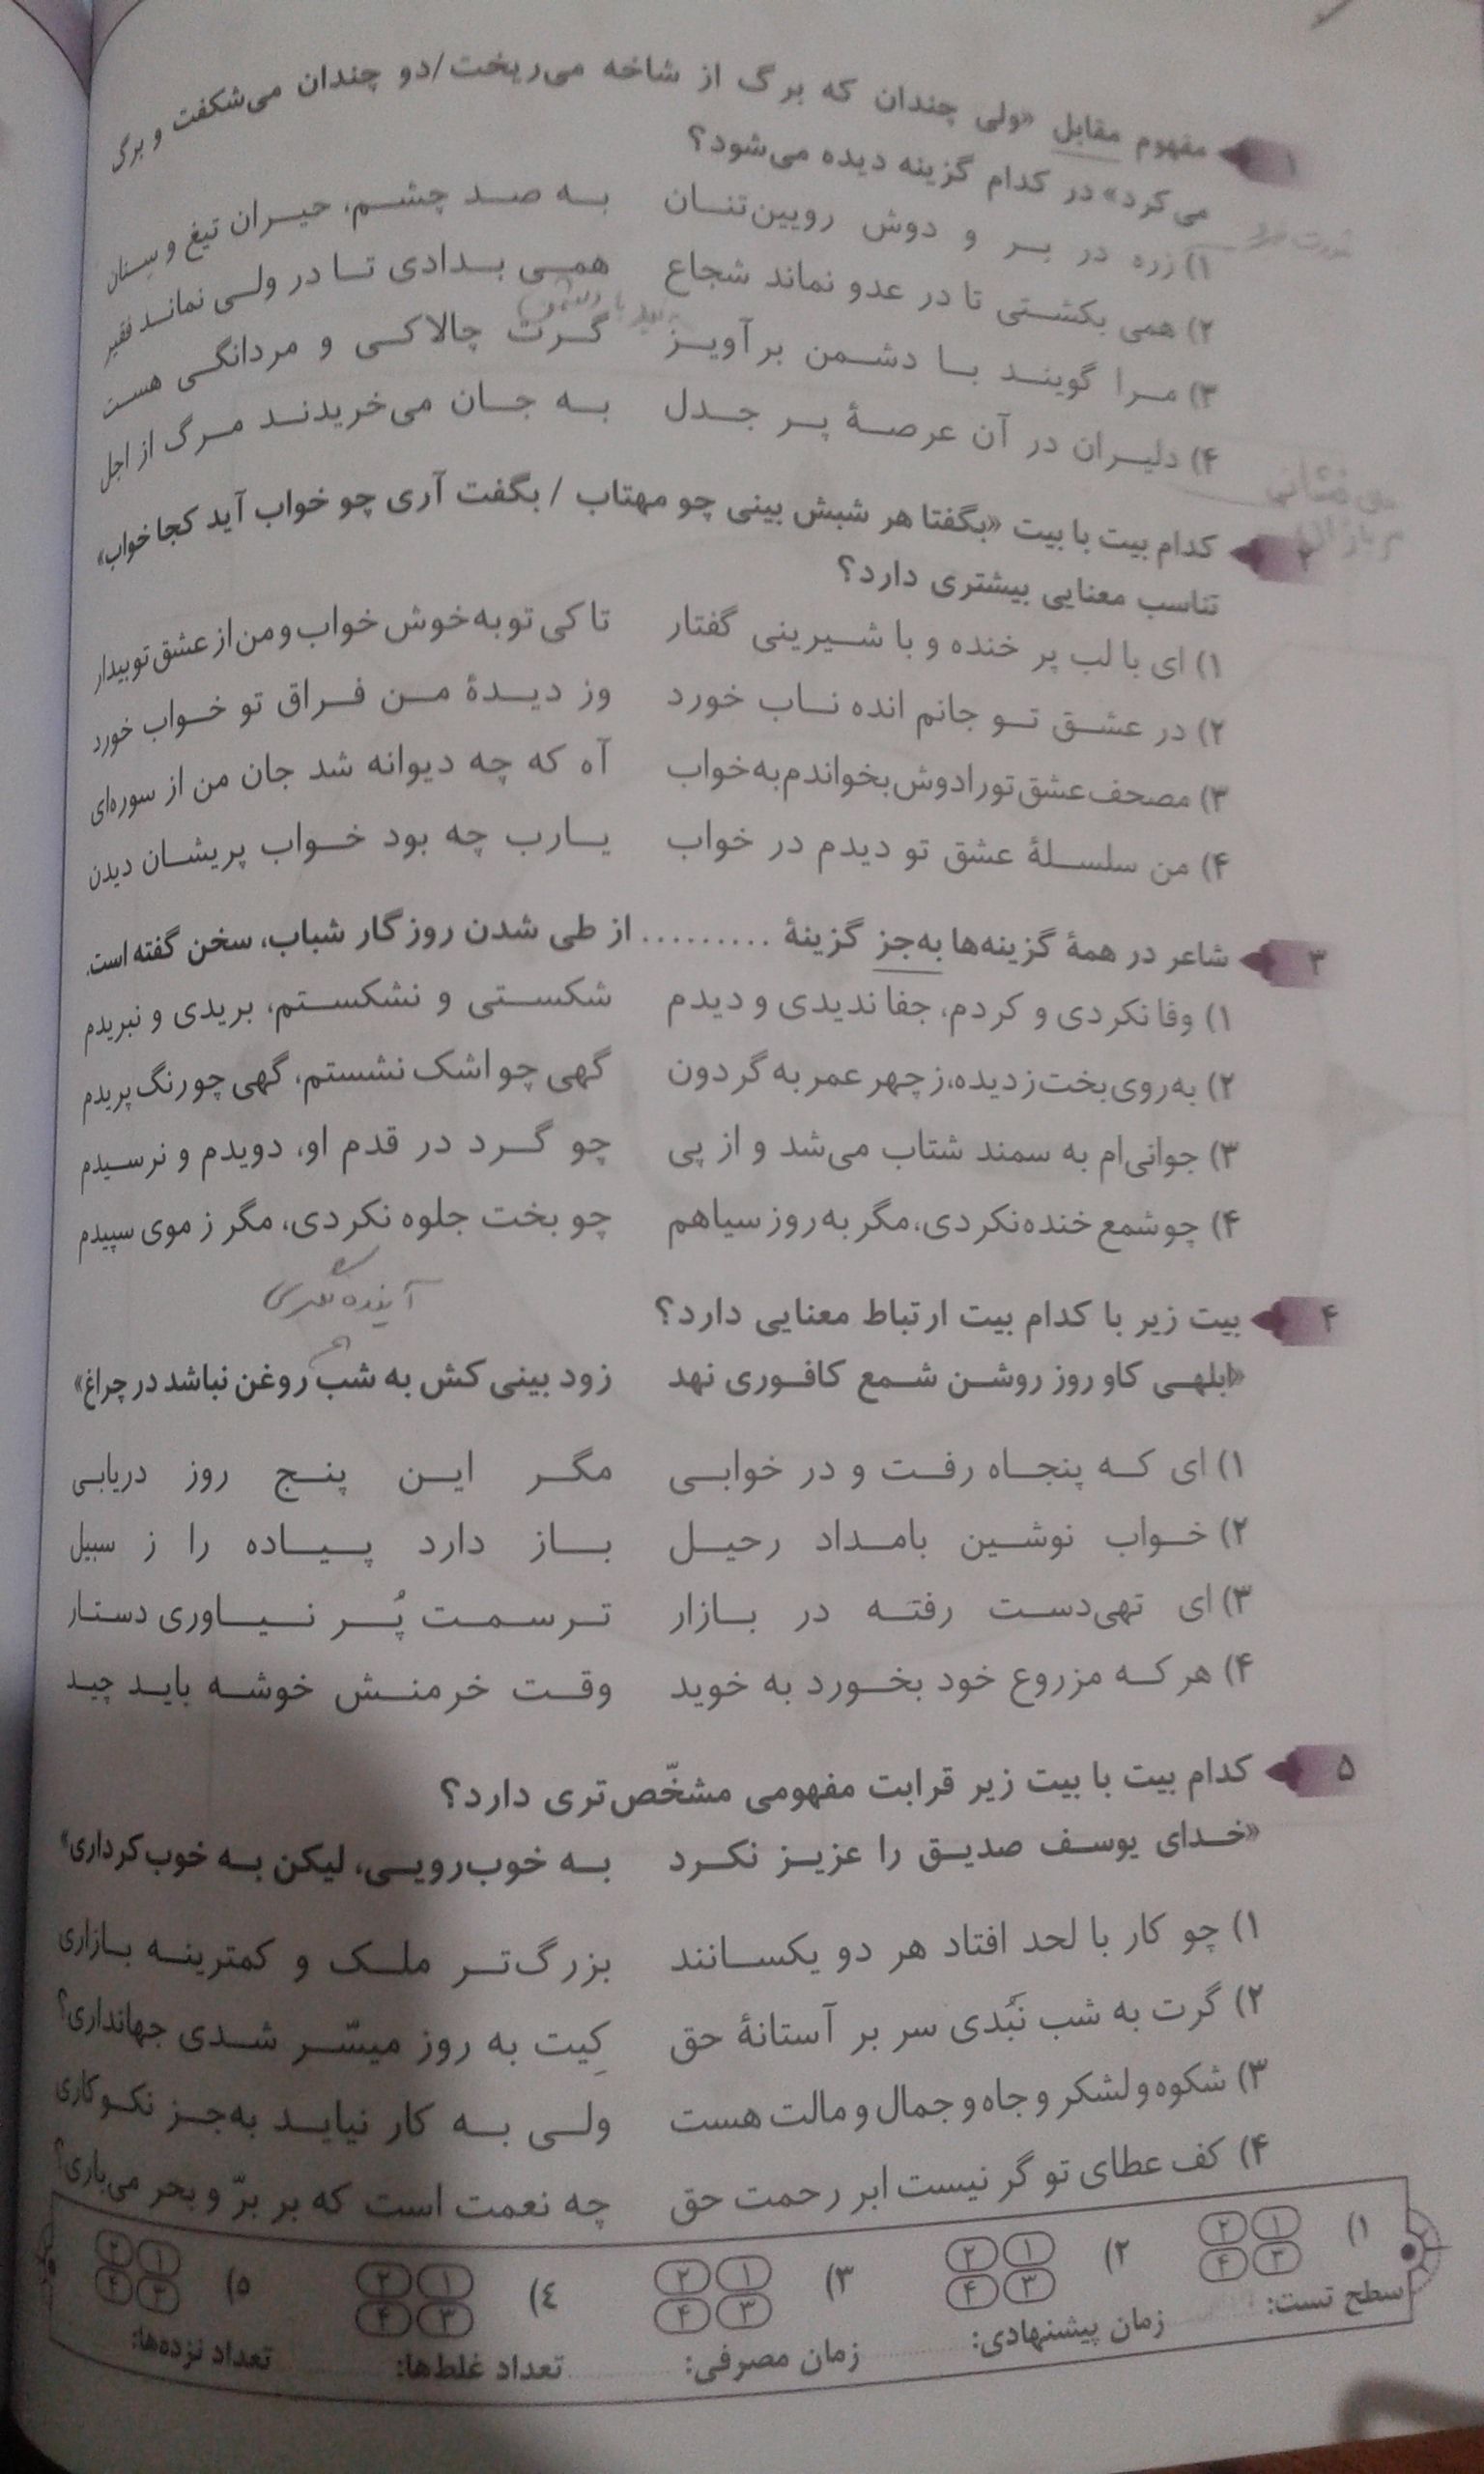 ۱ مفهوم مقابل «ولی چندان که برگ از شاخه می‌ریخت/دو چندان می‌شکفت و برگ
می‌کرد» در کدام گزینه دیده می‌شود؟
۱) زره در بر و دوش رویین‌تنان به صد چشم، حیران تیغ و سنان
۲) همی بکشتی تا در عدو نماند شجاع همی بدادی تا در ولی نماند فقیر
۳) مرا گویند با دشمن برآویز گرت چالاکی و مردانگی هست
۴) دلیران در آن عرصهٔ پر جدل به جان می‌خریدند مرگ از اجل
۲ کدام بیت با بیت «بگفتا هر شبش بینی چو مهتاب / بگفت آری چو خواب آید کجا خواب»
تناسب معنایی بیشتری دارد؟
۱) ای با لب پر خنده و با شیرینی گفتار تا کی تو به خوش خواب و من از عشق تو بیدار
۲) در عشق تو جانم انده ناب خورد وز دیدهٔ من فراق تو خواب خورد
۳) مصحف عشق تو را دوش بخواندم به خواب آه که چه دیوانه شد جان من از سوره‌ای
۴) من سلسلهٔ عشق تو دیدم در خواب یارب چه بود خواب پریشان دیدن
۳ شاعر در همهٔ گزینه‌ها به‌جز گزینهٔ ......... از طی شدن روزگار شباب، سخن گفته است.
۱) وفا نکردی و کردم، جفا ندیدی و دیدم شکستی و نشکستم، بریدی و نبریدم
۲) به روی بخت ز دیده، ز چهر عمر به گردون گهی چو اشک نشستم، گهی چو رنگ پریدم
۳) جوانی‌ام به سمند شتاب می‌شد و از پی چو گرد در قدم او، دویدم و نرسیدم
۴) چو شمع خنده نکردی، مگر به روز سیاهم چو بخت جلوه نکردی، مگر ز موی سپیدم
آینده نگری
۴ بیت زیر با کدام بیت ارتباط معنایی دارد؟
«ابلهی کاو روز روشن شمع کافوری نهد زود بینی کش به شب روغن نباشد در چراغ»
۱) ای که پنجاه رفت و در خوابی مگر این پنج روز دریابی
۲) خواب نوشین بامداد رحیل باز دارد پیاده را ز سبیل
۳) ای تهی‌دست رفته در بازار ترسمت پُر نیاوری دستار
۴) هر که مزروع خود بخورد به خوید وقت خرمنش خوشه باید چید
۵ کدام بیت با بیت زیر قرابت مفهومی مشخّص‌تری دارد؟
«خدای یوسف صدیق را عزیز نکرد به خوب‌رویی، لیکن به خوب‌کرداری»
۱) چو کار با لحد افتاد هر دو یکسانند بزرگ‌تر ملک و کمترینه بازاری
۲) گرت به شب نَبُدی سر بر آستانهٔ حق کِیت به روز میسّر شدی جهانداری؟
۳) شکوه و لشکر و جاه و جمال و مالت هست ولی به کار نیاید به‌جز نکوکاری
۴) کف عطای تو گر نیست ابر رحمت حق چه نعمت است که بر برّ و بحر می‌باری؟
۱) ۱ ۲ ۳ ۴ ۲) ۱ ۲ ۳ ۴ ۳) ۱ ۲ ۳ ۴ ٤) ۱ ۲ ۳ ۴ ۵) ۱ ۲ ۳ ۴
سطح تست: زمان پیشنهادی: زمان مصرفی: تعداد غلط‌ها: تعداد نزده‌ها: